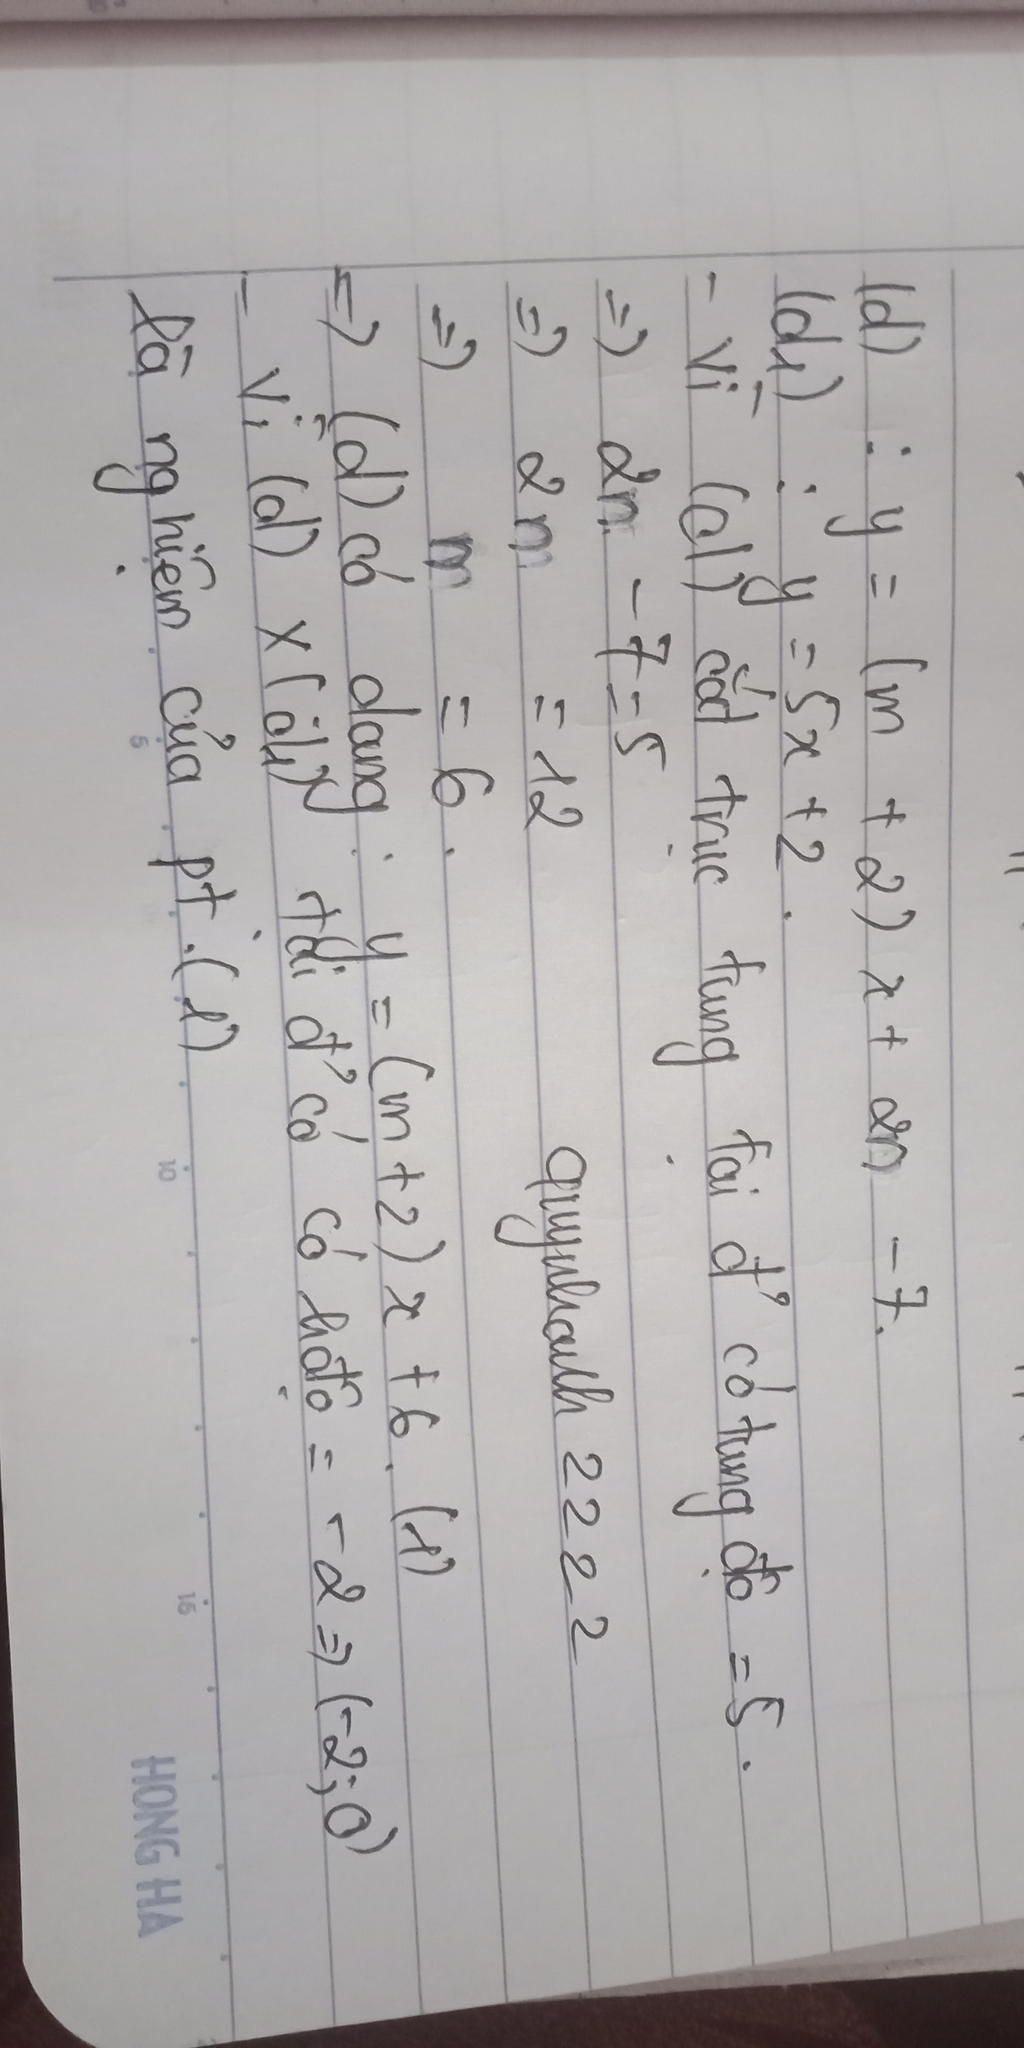 (d) : y = (m + 2) x + 2n - 7.
(d1) : y = 5x + 2.
- Vì (d) cắt trục tung tại đ' có tung độ = 5.
=) 2n - 7 = 5
=) 2n = 12
quynhanh 2222
=) n = 6.
=) (d) có dạng: y = (m + 2) x + 6. (1)
- Vì (d) x (d1) tại đ' có có hđộ = -2 => (-2; 0)
là nghiệm của pt. (1)
5
10
15
HONG HA